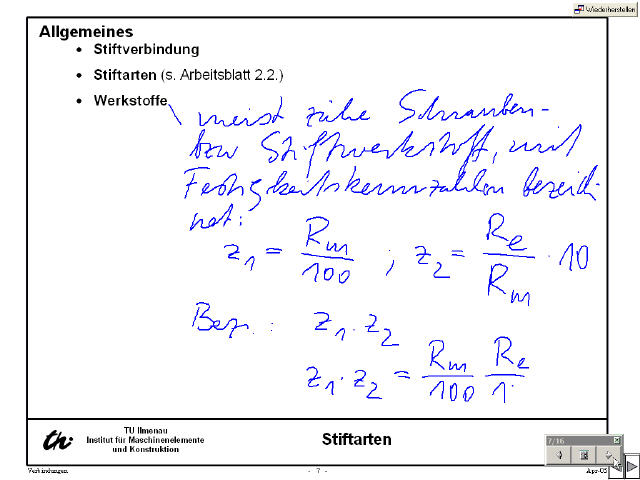 Wiederherstellen
Allgemeines
• Stiftverbindung
• Stiftarten (s. Arbeitsblatt 2.2.)
• Werkstoffe
meist zähe Schrauben-
bzw Stiftwerkstoff, mit
Festigkeitskennzahlen bezeich
net:
z1 = Rm/100 ; z2 = Re/Rm · 10
Bez. : z1 . z2
z1 · z2 = Rm/100 Re/1
th
TU Ilmenau
Institut für Maschinenelemente
und Konstruktion
Stiftarten
7/16
Verbindungen
- 7 -
Apr-05